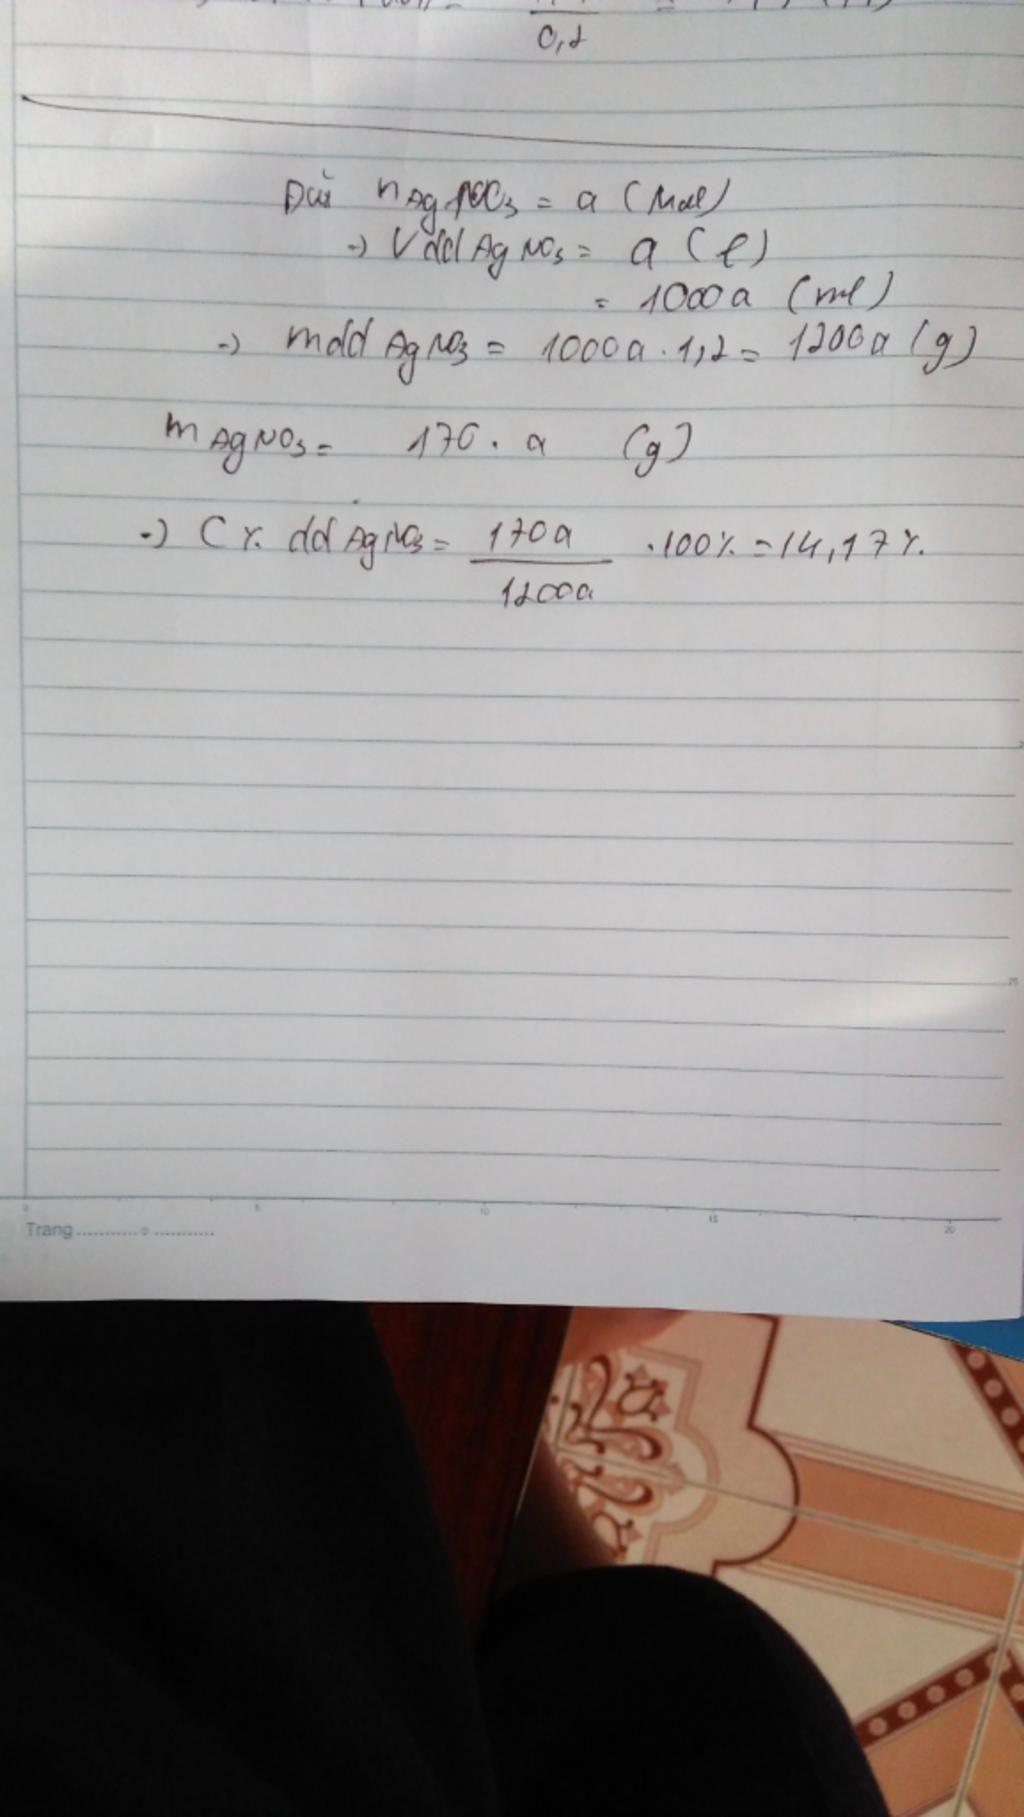 0,2
Đặt nAgNO3 = a (mol)
-) Vdd AgNO3 = a (l)
= 1000a (ml)
-) mdd AgNO3 = 1000a . 1,2 = 1200a (g)
mAgNO3 = 170 . a (g)
-) C% dd AgNO3 = 170a / 1200a .100% = 14,17%
Trang
5 10 15 20
25